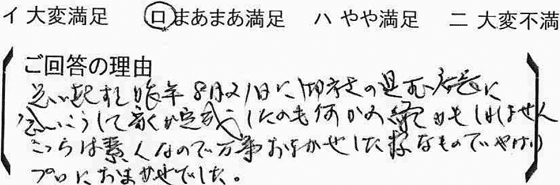 イ 大変満足 ロ まあまあ満足 ハ やや満足 ニ 大変不満
ご回答の理由
思い起すと昨年8月21日に
こうして家が完成したのも何かの縁かもしれません
こちらは素人なので万事おまかせした様なものでやはり
プロにおまかせでした。